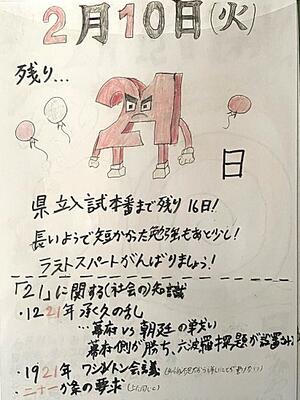 2月10日(火)
残り...
21
日
県立入試本番まで残り16日!
長いようで短かった勉強もあと少し!
ラストスパートがんばりましょう!
「21」に関する(社会の)知識
・1221年 承久の乱
…幕府 vs 朝廷の戦い
幕府側が勝ち、六波羅探題が設置され
・1921年 ワシントン会議
・二十一か条の要求